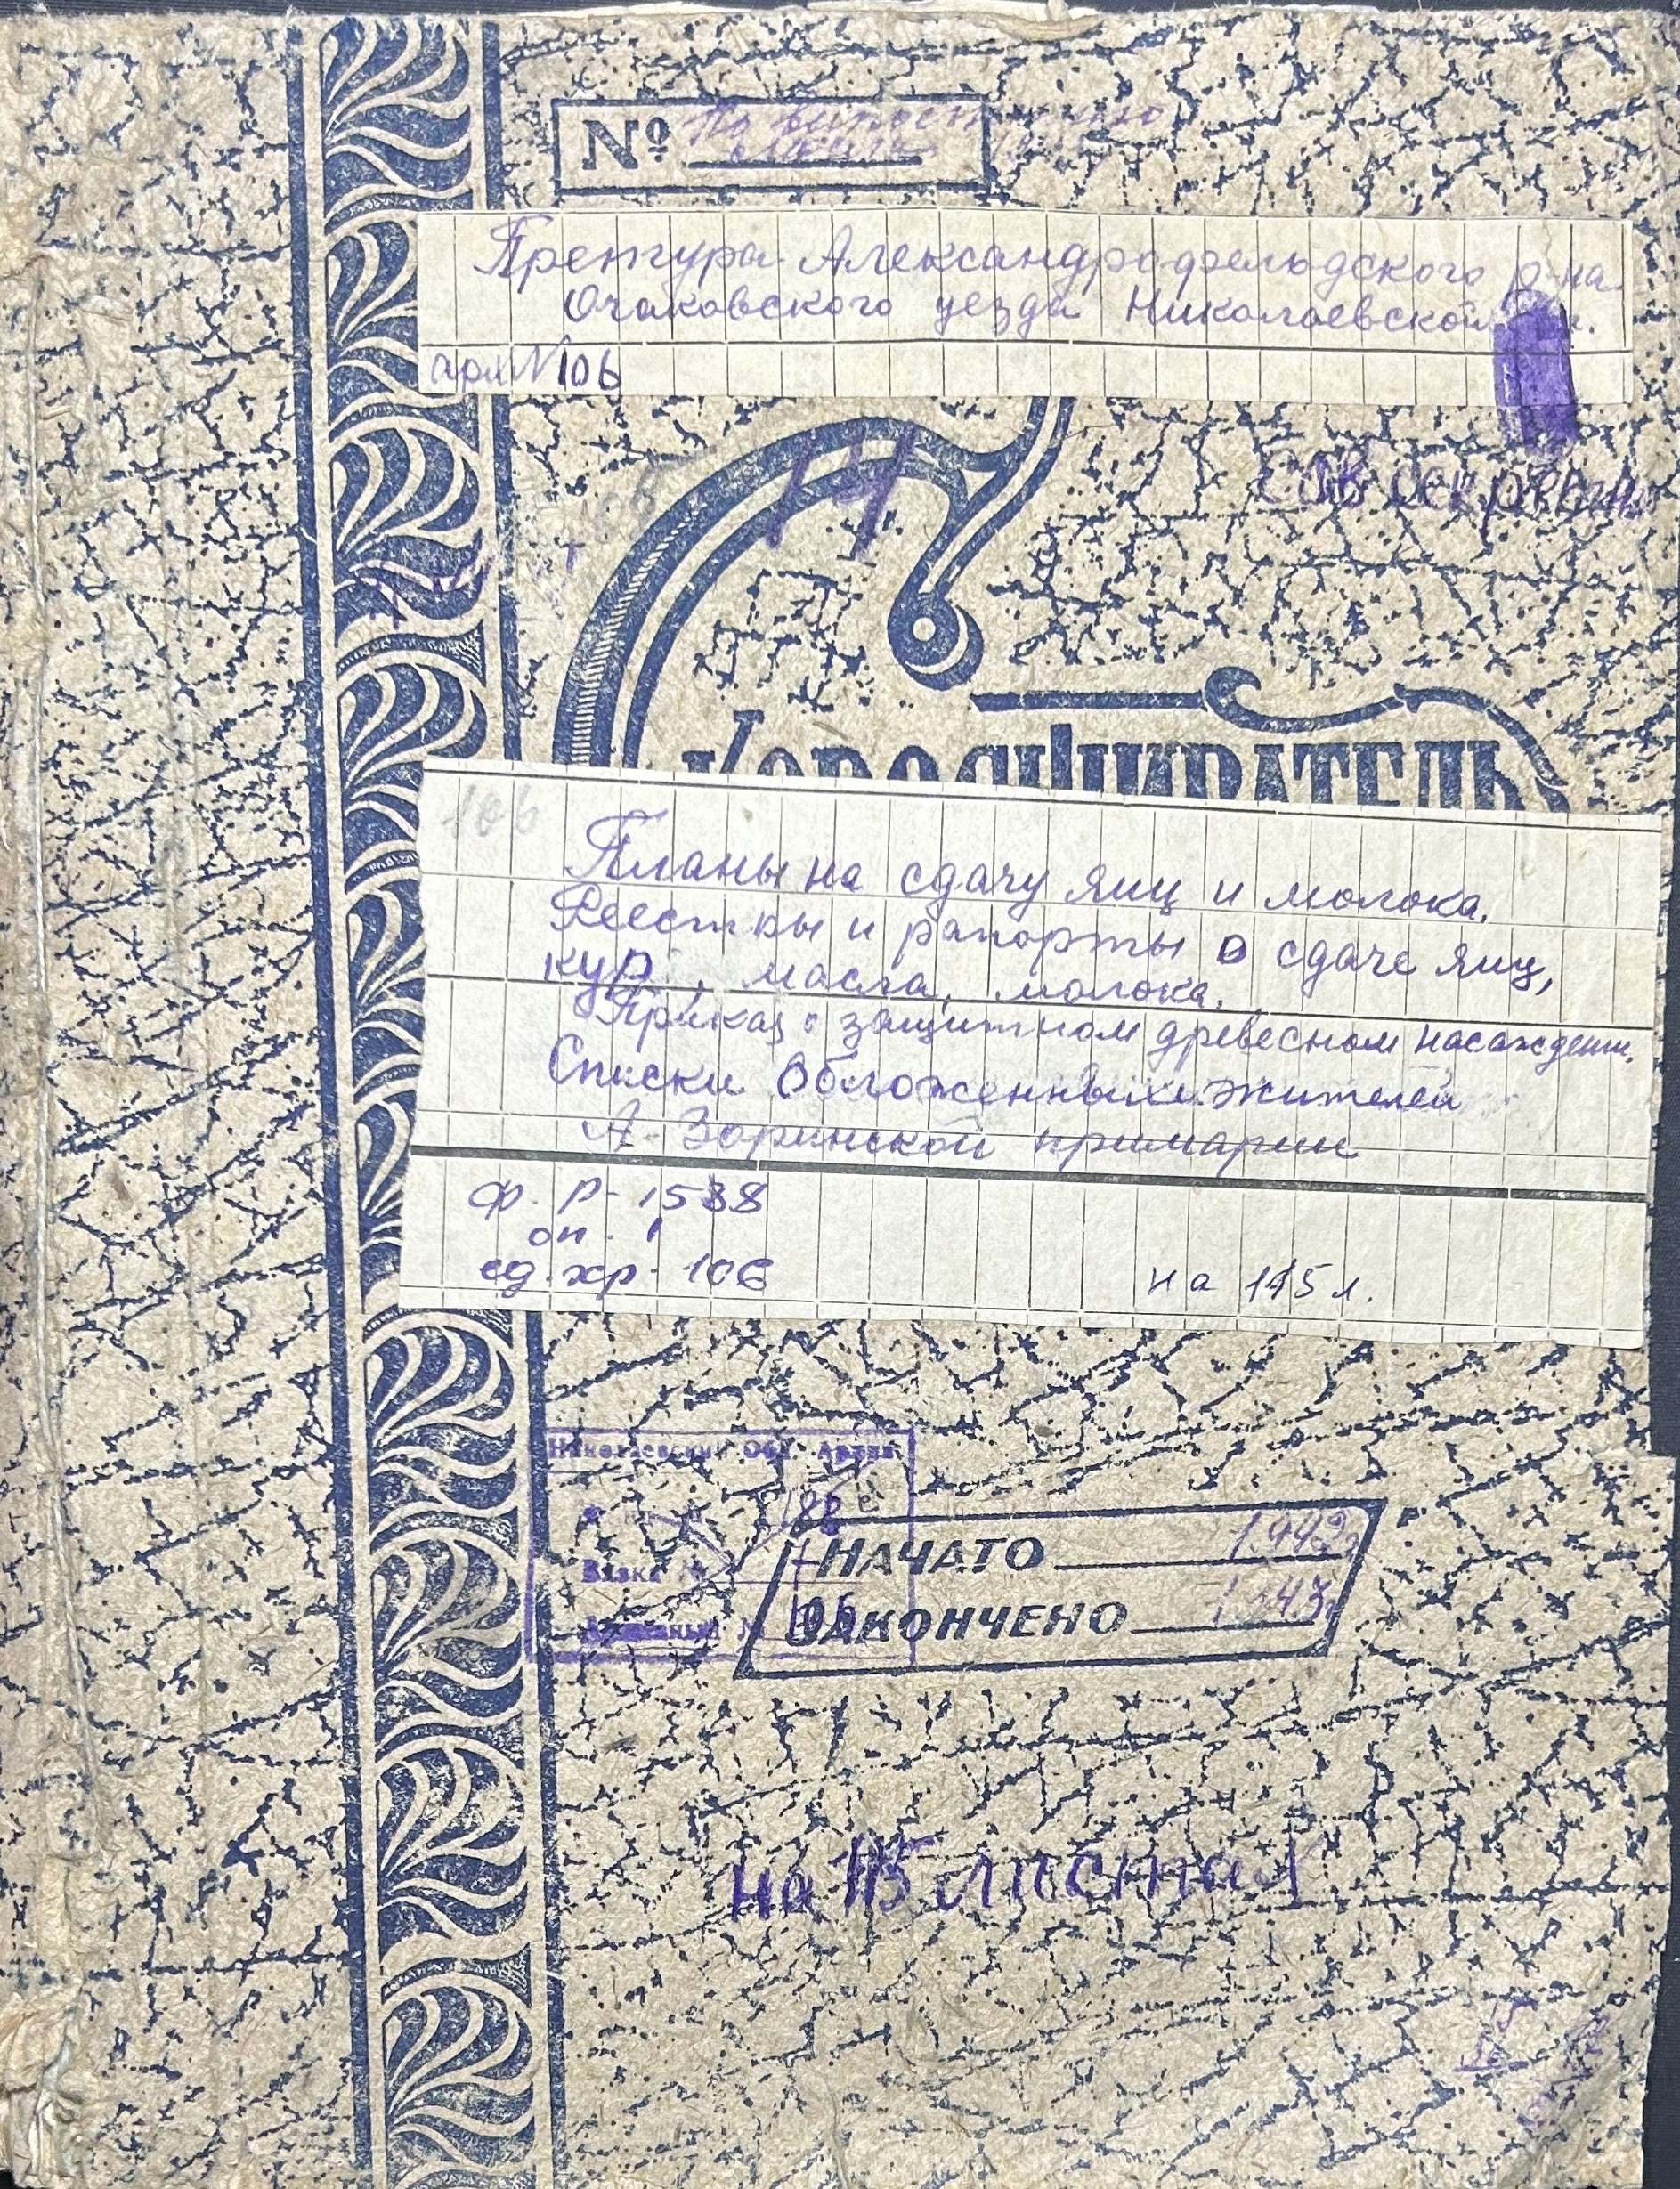 №
Претура Александрофельдского р-на
Очаковского уезда Николаевской
арх №106
14
сов секретно
Скоросшиватель
106
Планы на сдачу яиц и молока.
Реестры и рапорты о сдаче яиц,
кур, масла, молока.
Приказ о защитном древесном насажден.
Списки обложенных жителей
А-Зоринской примарии
ф. Р-1538
оп. 1
ед. хр. 106
на 115 л.
Николаевский Обл. Архив
НАЧАТО 1942г
Вязка №
ЗАКОНЧЕНО 1943г
Архивный № 106
на 115 листах